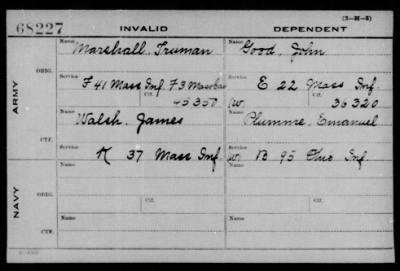 (3-H-3)
68227 INVALID DEPENDENT
Name Name
Marshall, Truman Good, John
ORIG. Service Service
F 41 Mass Inf. F 3 Mass Cav E 22 Mass Inf.
Ctf. Ctf.
45350 (W) 36320
ARMY
Name Name
Walsh, James Plumme, Emanuel
CTF. Service Service
K 37 Mass Inf. (W) B 95 Ohio Inf.
NAVY
Name Name
ORIG. Service Service
Ctf. Ctf.
Name Name
CTF. Service Service